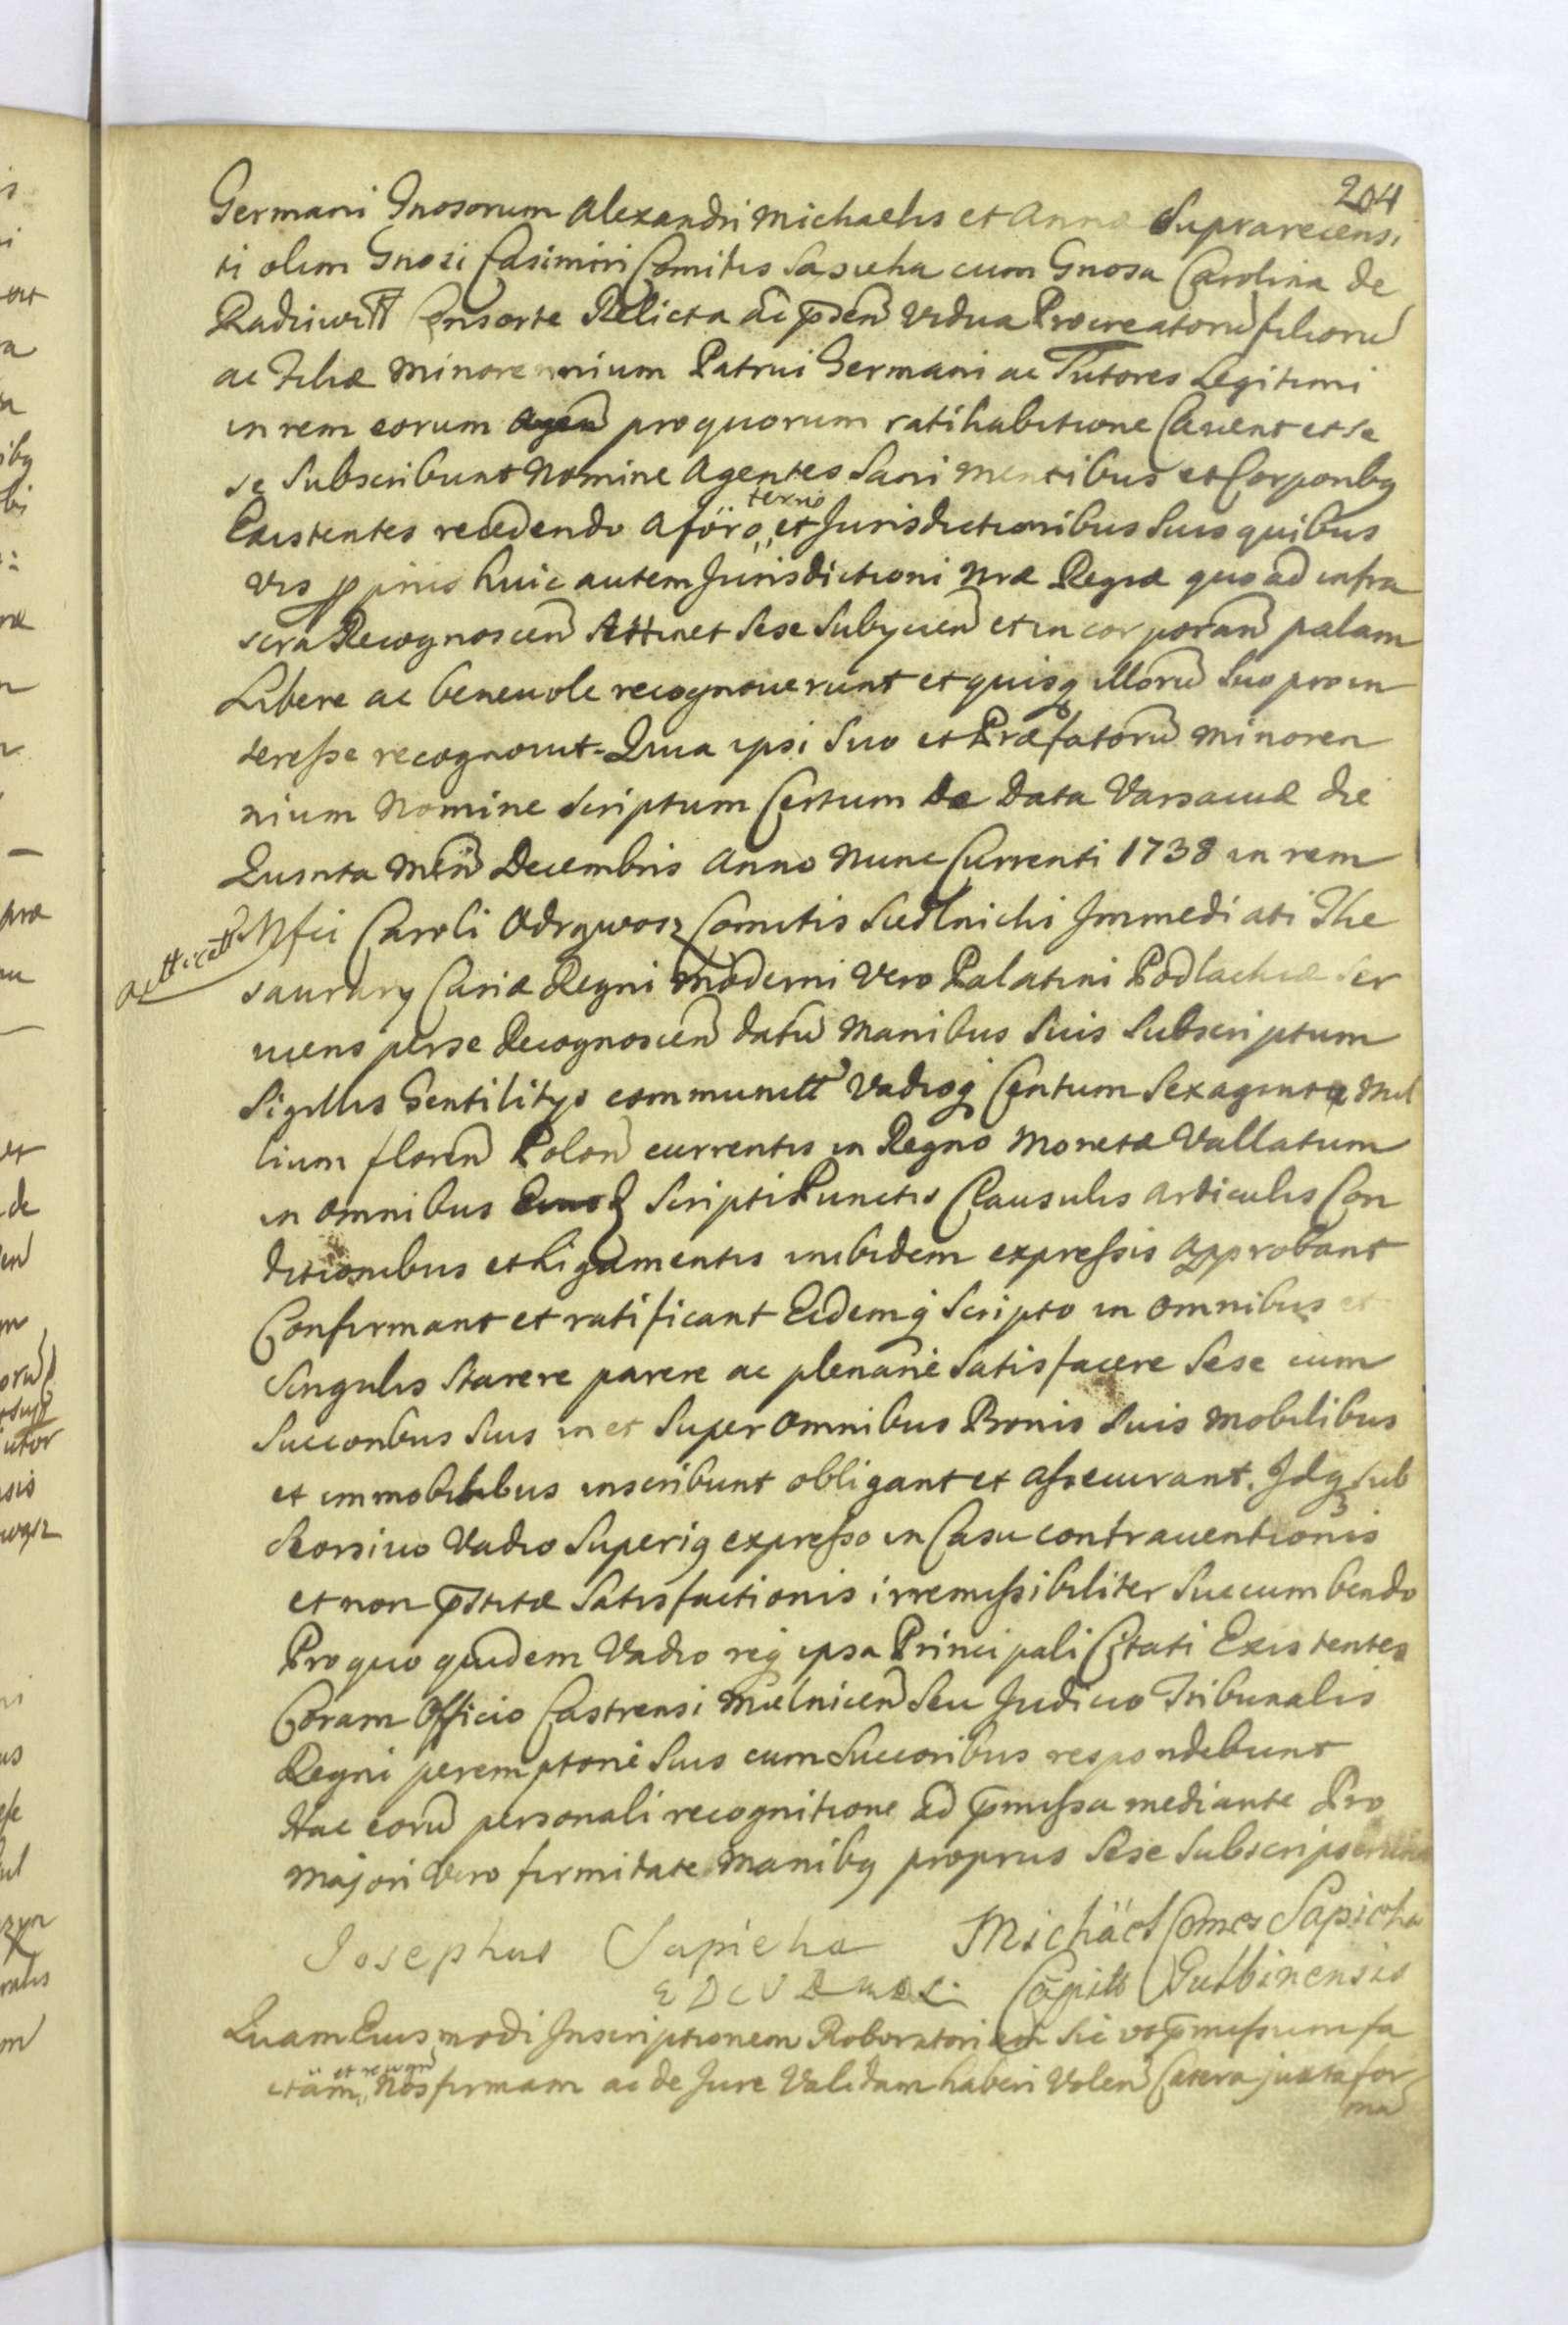 204
Germani Gnosorum Alexandri Michaelis et Anna Suprarecensi
ti olim Gnosi Casimiri Comitis Sapieha cum Gnosa Carolina de
Radziwiłł Consorte Relicta ac p̄sen̄ Vidua Procreatorū filiorū
ac Filiæ minorennium Patrui Germani ac Tutores Legitimi
in rem eorum agen̄ pro quorum ratihabitione Cavent et se
se Subscribunt Nomine Agentes Sani mentibus et Corporibq
Existentes recedendo a foro et Jurisdictionibus Suis quibus
terrio
vis ppriis huic autem Jurisdictioni Nræ Regiæ quo ad infra
scra Recognoscen̄ Attinet Sese Subijcien̄ et incorporan̄ palam
Libere ac benevole recognoverunt et quisq illorū Suo pro in
teresse recognovit Quia ipsi Suo et Præfatorū minoren
nium Nomine Scriptum Certum de Data Varsaviæ die
Quinta Mēn Decembris Anno Nunc Currenti 1738 in rem
Mfici Caroli Odrywosz Comitis Siedlnicki Immediati The
saurarij Curiæ Regni moderni Vero Palatini Podlachiæ Ser
viens per se Recognoscen̄ datū Manibus Suis Subscriptum
Sigillis Gentilitijs communitt Vadioq Centum Sexaginta Mil
lium floren̄ Polon̄ currentis in Regno Monetæ Vallatum
in omnibus Eiusd Scripti Punctis Clausulis Articulis Con
ditionibus et Ligamentis inibidem expressis Approbant
Confirmant et ratificant Eidemq Scripto in omnibus et
Singulis Starere parere ac plenarie Satisfacere Sese cum
Succoribus Suis in et Super omnibus Bonis Suis mobilibus
et immobilibus inscribunt obligant et assecurant. Idq Sub
Seorsivo Vadio Superiq expresso in Casu contraventionis
et non p̄stitæ Satisfactionis irremissibiliter Succumbendo
Pro quo quidem Vadio req ipsa Principali Citati Existentes
Coram Officio Castrensi Mielnicen̄ Seu Judicio Tribunalis
Regni peremptorie Suis cum Succoribus respondebunt
Hac eorū personali recognitione ad p̄missa mediante Pro
Majori Vero firmitate Manibq proprijs Sese Subscripserunt
Josephus Sapieha Michäel Comes Sapieha
Capitt Gulbinensis
Quam Eiusmodi Inscriptionem Roboratoriam Sic ut p̄missum fa
et recogn̄
ctam Nos firmam ac de Jure Validam haberi Volen̄ Cætera juxta for
mā